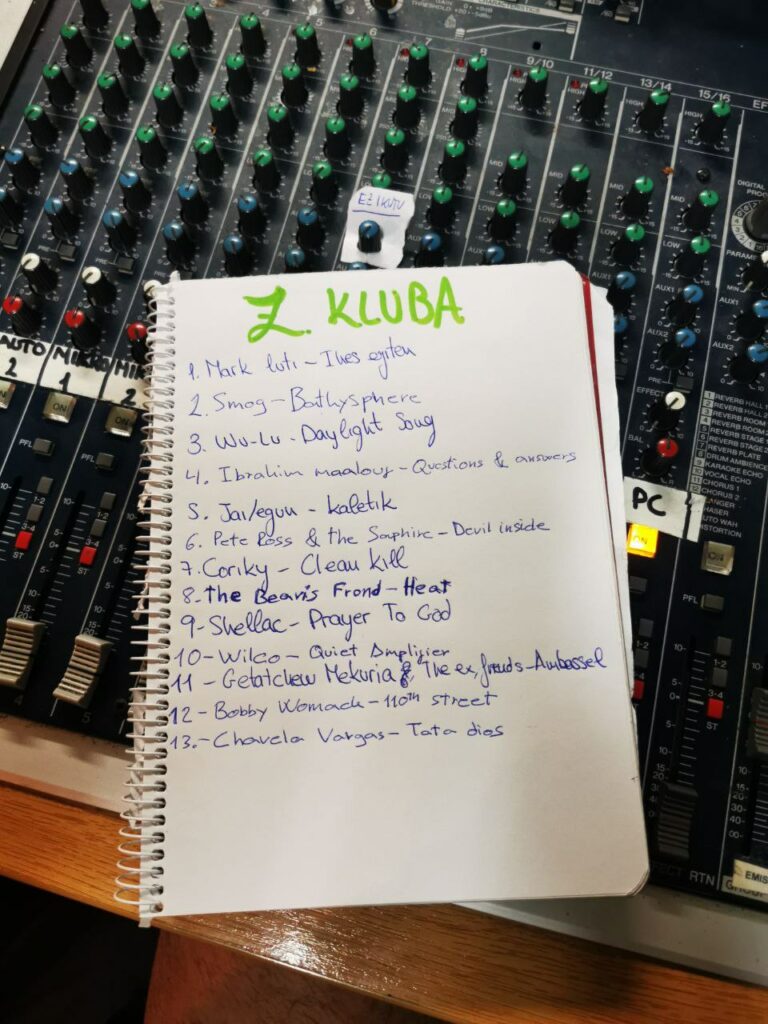 9/10 11/12 13/14 15/16
EZ IKUTU
Z. KLUBA
1. Mark luti - Ihes egiten
2. Smog - Bathysphere
3. Wu-Lu - Daylight Song
4. Ibrahim maalouf - Questions & answers
5. Jai/egun - kaletik
6. Pete Ross & the Saphire - Devil inside
7. Coriky - Clean kill
8. The Bevis Frond - Heat
9 - Shellac - Prayer To God
10 - Wilco - Quiet Amplifier
11 - Getatchew Mekuria & The ex, friends - Ambassel
12 - Bobby Womack - 110th street
13. - Chavela Vargas - Tata dios
AUTO 2
MIKRO 1
PC
ON
PFL
REVERB HALL 1
REVERB ROOM 1
REVERB ROOM 2
REVERB STAGE 1
REVERB STAGE 2
REVERB PLATE
DRUM AMBIENCE
KARAOKE ECHO
VOCAL ECHO
CHORUS 1
CHORUS 2
AUTO WAH
DISTORTION